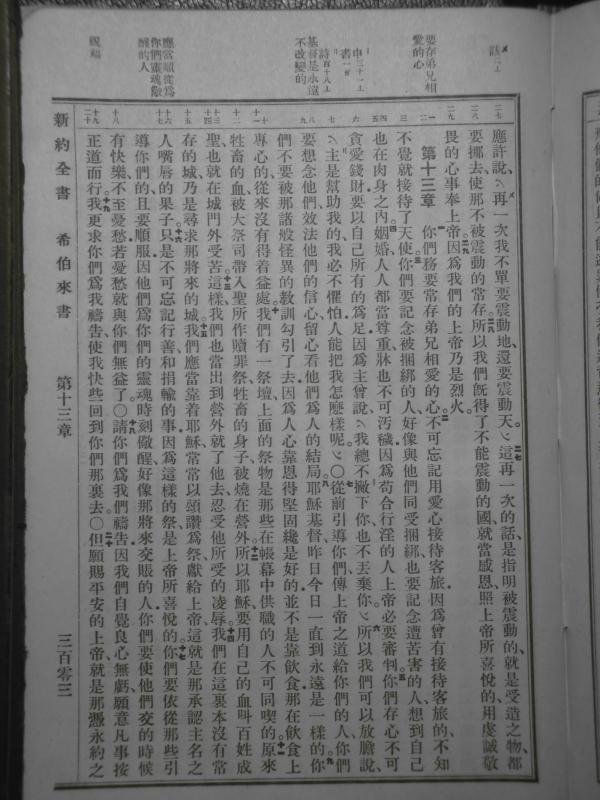 要存弟兄相
愛的心
申三十一上
書一
詩百十八上
基督是永遠
不改變的
應當順從爲
你們靈魂儆
醒的人
祝福
應許說、再一次我不單要震動地、還要震動天。這再一次的話、是指明被震動的、就是受造之物、都
要挪去、使那不被震動的常存。所以我們既得了不能震動的國、就當感恩、照上帝所喜悅的、用虔誠敬
畏的心事奉上帝。因爲我們的上帝乃是烈火。
第十三章 你們務要常存弟兄相愛的心。不可忘記用愛心接待客旅、因爲曾有接待客旅的、不知
不覺就接待了天使。你們要記念被捆綁的人、好像與他們同受捆綁、也要記念遭苦害的人、想到自己
也在肉身之內。婚姻、人人都當尊重、牀也不可汚穢、因爲苟合行淫的人、上帝必要審判。你們存心不可
貪愛錢財、要以自己所有的爲足。因爲主曾說、我總不撇下你、也不丟棄你。所以我們可以放膽說、
主是幫助我的、我必不懼怕、人能把我怎麼樣呢。○從前引導你們、傳上帝之道給你們的人、你們
要想念他們、效法他們的信心、留心看他們爲人的結局。耶穌基督昨日今日一直到永遠是一樣的。你
們不要被那諸般怪異的教訓勾引了去、因爲人心靠恩得堅固纔是好的、並不是靠飲食、那在飲食上
專心的、從來沒有得着益處。我們有一祭壇、上面的祭物是那些在帳幕中供職的人不可同喫的。原來
牲畜的血、被大祭司帶入聖所作贖罪祭、牲畜的身子被燒在營外。所以耶穌要用自己的血叫百姓成
聖、也就在城門外受苦。這樣我們也當出到營外就了他去、忍受他所受的凌辱。我們在這裏本沒有常
存的城、乃是尋求那將來的城。我們應當靠着耶穌、常常以頌讚爲祭、獻給上帝、這就是那承認主名之
人嘴唇的果子。只是不可忘記行善、和捐輸的事、因爲這樣的祭、是上帝所喜悅的。你們要依從那些引
導你們的、且要順服、因他們爲你們的靈魂時刻儆醒、好像那將來交賬的人。你們要使他們交的時候
有快樂、不至憂愁、若憂愁就與你們無益了。○請你們爲我們禱告、因我們自覺良心無虧、願意凡事按
正道而行。我更求你們爲我禱告、使我快些回到你們那裏去。○但願賜平安的上帝、就是那憑永約之
新約全書 希伯來書 第十三章 三百零三